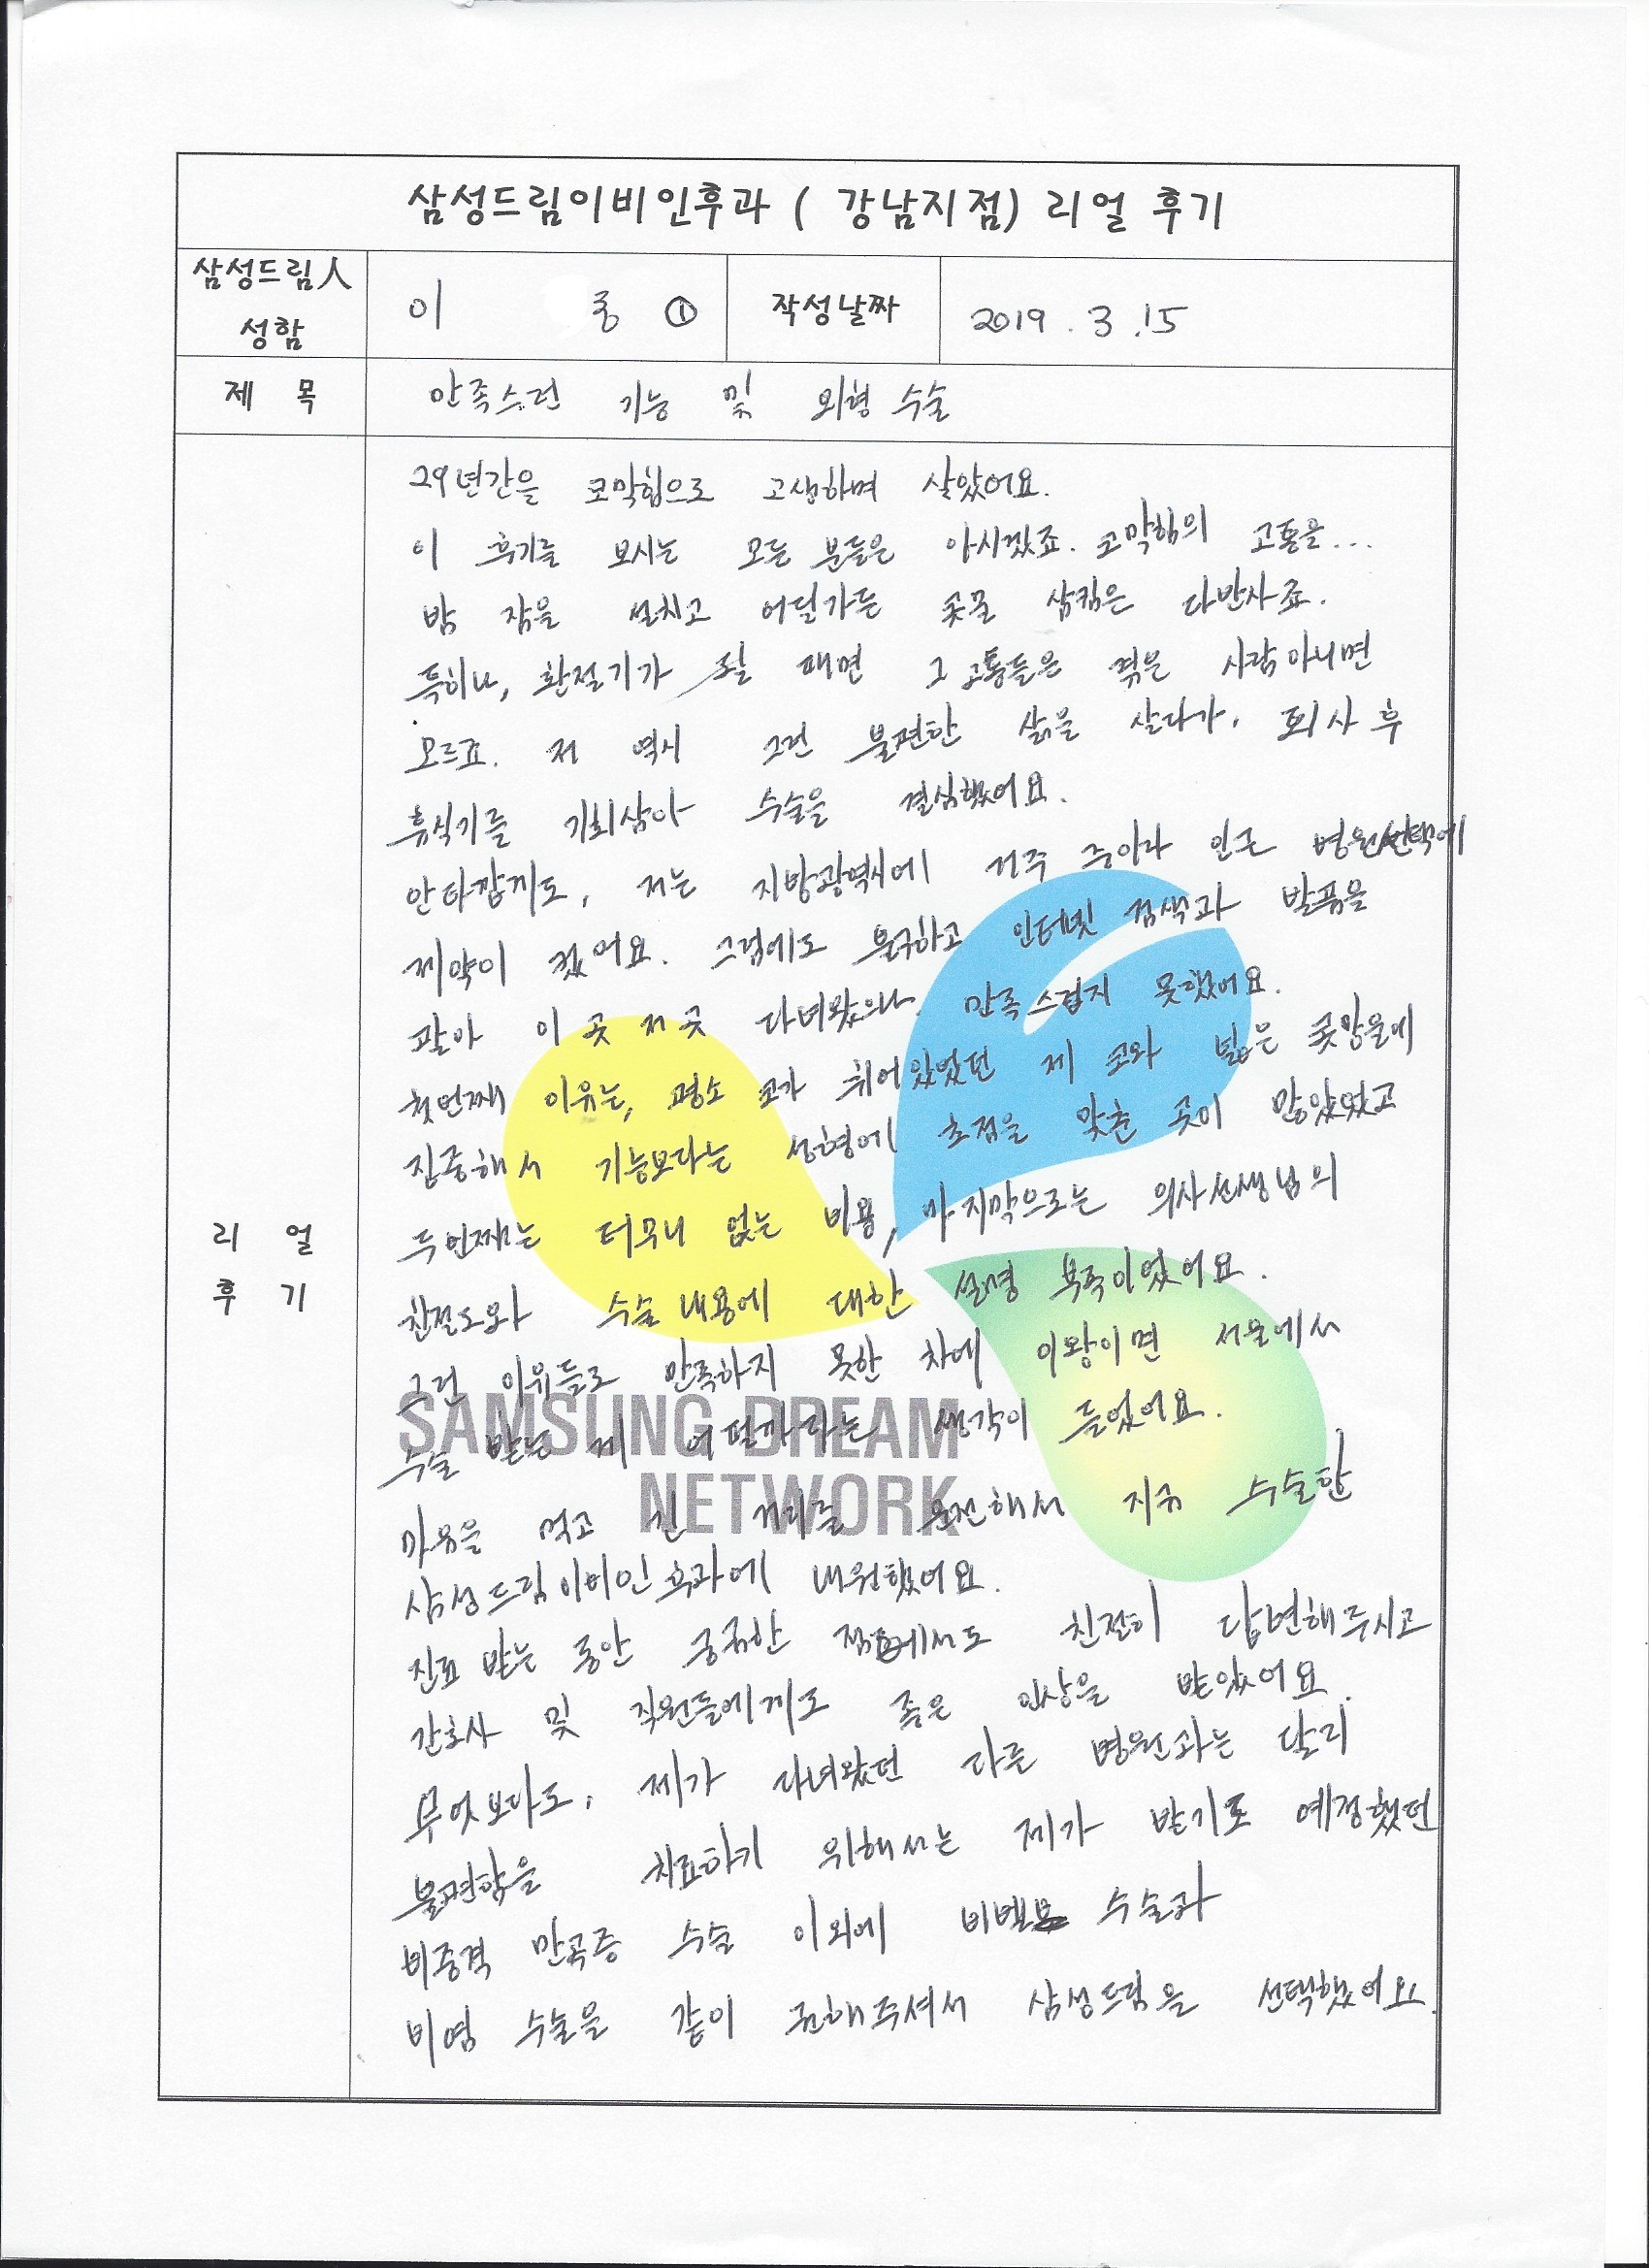 삼성드림이비인후과 ( 강남지점) 리얼 후기
삼성드림人 성함
이 종 ①
작성날짜
2019 . 3 .15
제 목
만족스런 기능 및 외형 수술
리 얼
후 기
29년간을 코막힘으로 고생하며 살았어요.
이 후기를 보시는 모든 분들은 아시겠죠. 코막힘의 고통을...
밤 잠을 설치고 어딜가든 콧물 삼킴은 다반사죠.
특히나, 환절기가 될 때면 그 고통들은 겪은 사람아니면
모르죠. 저 역시 그런 불편한 삶을 살다가, 퇴사 후
휴식기를 기회삼아 수술을 결심했어요.
안타깝게도, 저는 지방광역시에 거주 중이라 인근 병원선택에
제약이 컸어요. 그럼에도 불구하고 인터넷 검색과 발품을
팔아 이 곳 저 곳 다녀왔으나, 만족스럽지 못했어요.
첫번째 이유는, 평소 코가 휘어있었던 제 코와 넓은 콧망울에
집중해서 기능보다는 성형에 초점을 맞춘 곳이 많았었고
두번째는 터무니 없는 비용, 마지막으로는 의사선생님의
친절도와 수술 내용에 대한 설명 부족이었어요.
그런 이유들로 만족하지 못한 차에 이왕이면 서울에서
수술 받는 게 어떨까라는 생각이 들었어요.
SAMSUNG DREAM
NETWORK
마음을 먹고 긴 거리를 운전해서 지금 수술한
삼성드림이비인후과에 내원했어요.
진료 받는 동안 궁금한 점에서도 친절히 답변해주시고
간호사 및 직원들에게도 좋은 인상을 받았어요.
무엇보다도, 제가 다녀왔던 다른 병원과는 달리
불편함을 치료하기 위해서는 제가 받기로 예정했던
비중격 만곡증 수술 이외에 비밸브 수술과
비염 수술을 같이 권해주셔서 삼성드림을 선택했어요.